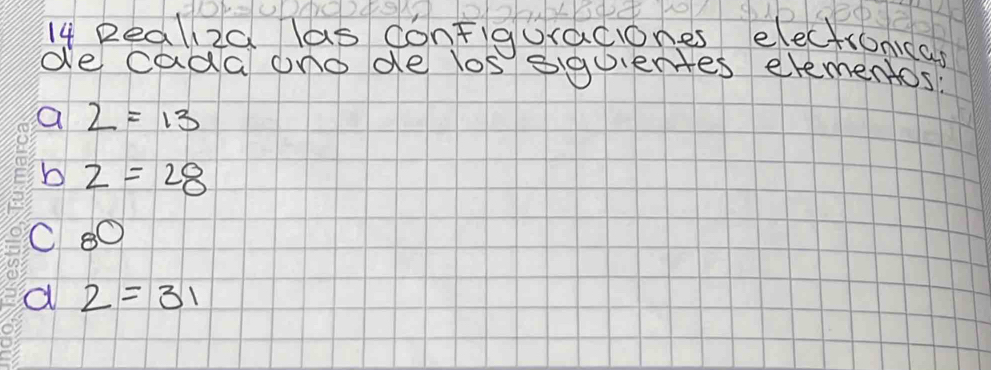 14 Realiza las configuraciones electronicas
de cada uno de los siguientes elementos:
a Z = 13
b Z = 28
c ₈O
d Z = 31
Tu estilo, Tu marca